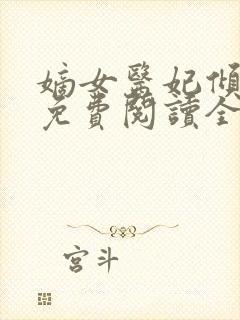 嫡女醫妃傾
免費閱讀全
宮斗